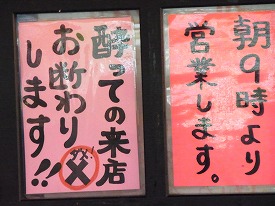 朝9時より
営業します。
酔っての来店
お断わり
します!!
ダメ!